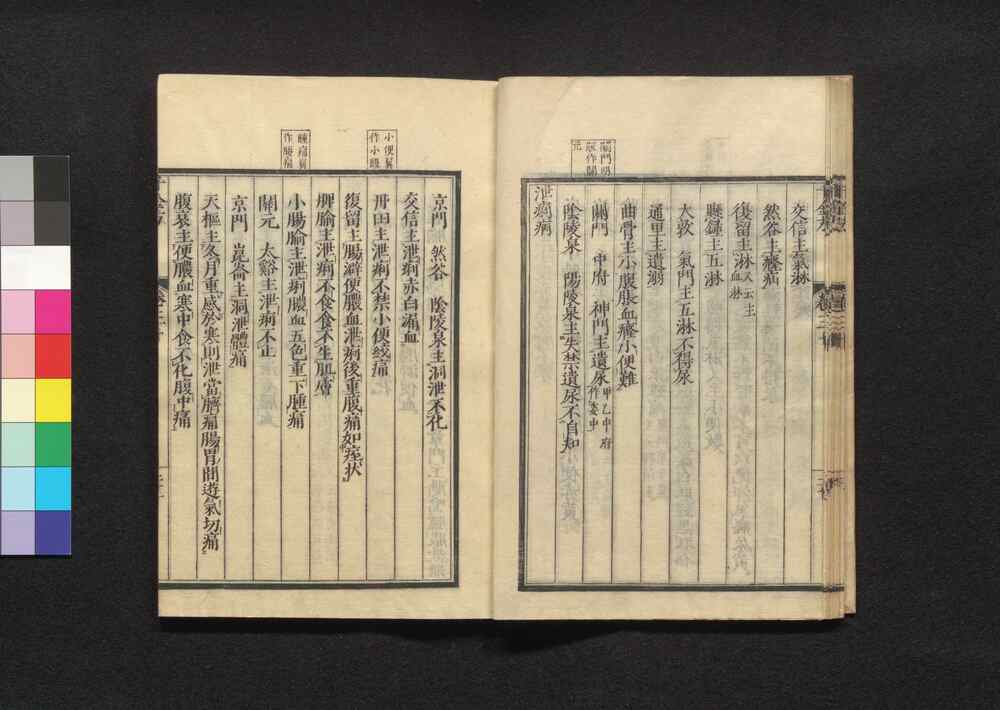 交信主氣淋
然谷主癃疝
復留主淋又云主血淋
懸鍾主五淋
大敦 氣門主五淋不得尿
通里主遺溺
曲骨主小腹脹血癃小便難
關門 中府 神門主遺尿甲乙中府作委中
陰陵泉 陽陵泉主失禁遺尿不自知
泄痢病
京門 然谷 陰陵泉主洞泄不化
交信主泄痢赤白漏血
丹田主泄痢不禁小便絞痛
復留主腸澼便膿血泄痢後重腹痛如痓狀
脾腧主泄痢不食食不生肌膚
小腸腧主泄痢膿血五色重下腫痛
關元 太谿主泄痢不止
京門 崑崙主洞泄體痛
天樞主冬月重感於寒則泄當臍痛腸胃間遊氣切痛
腹哀主便膿血寒中食不化腹中痛